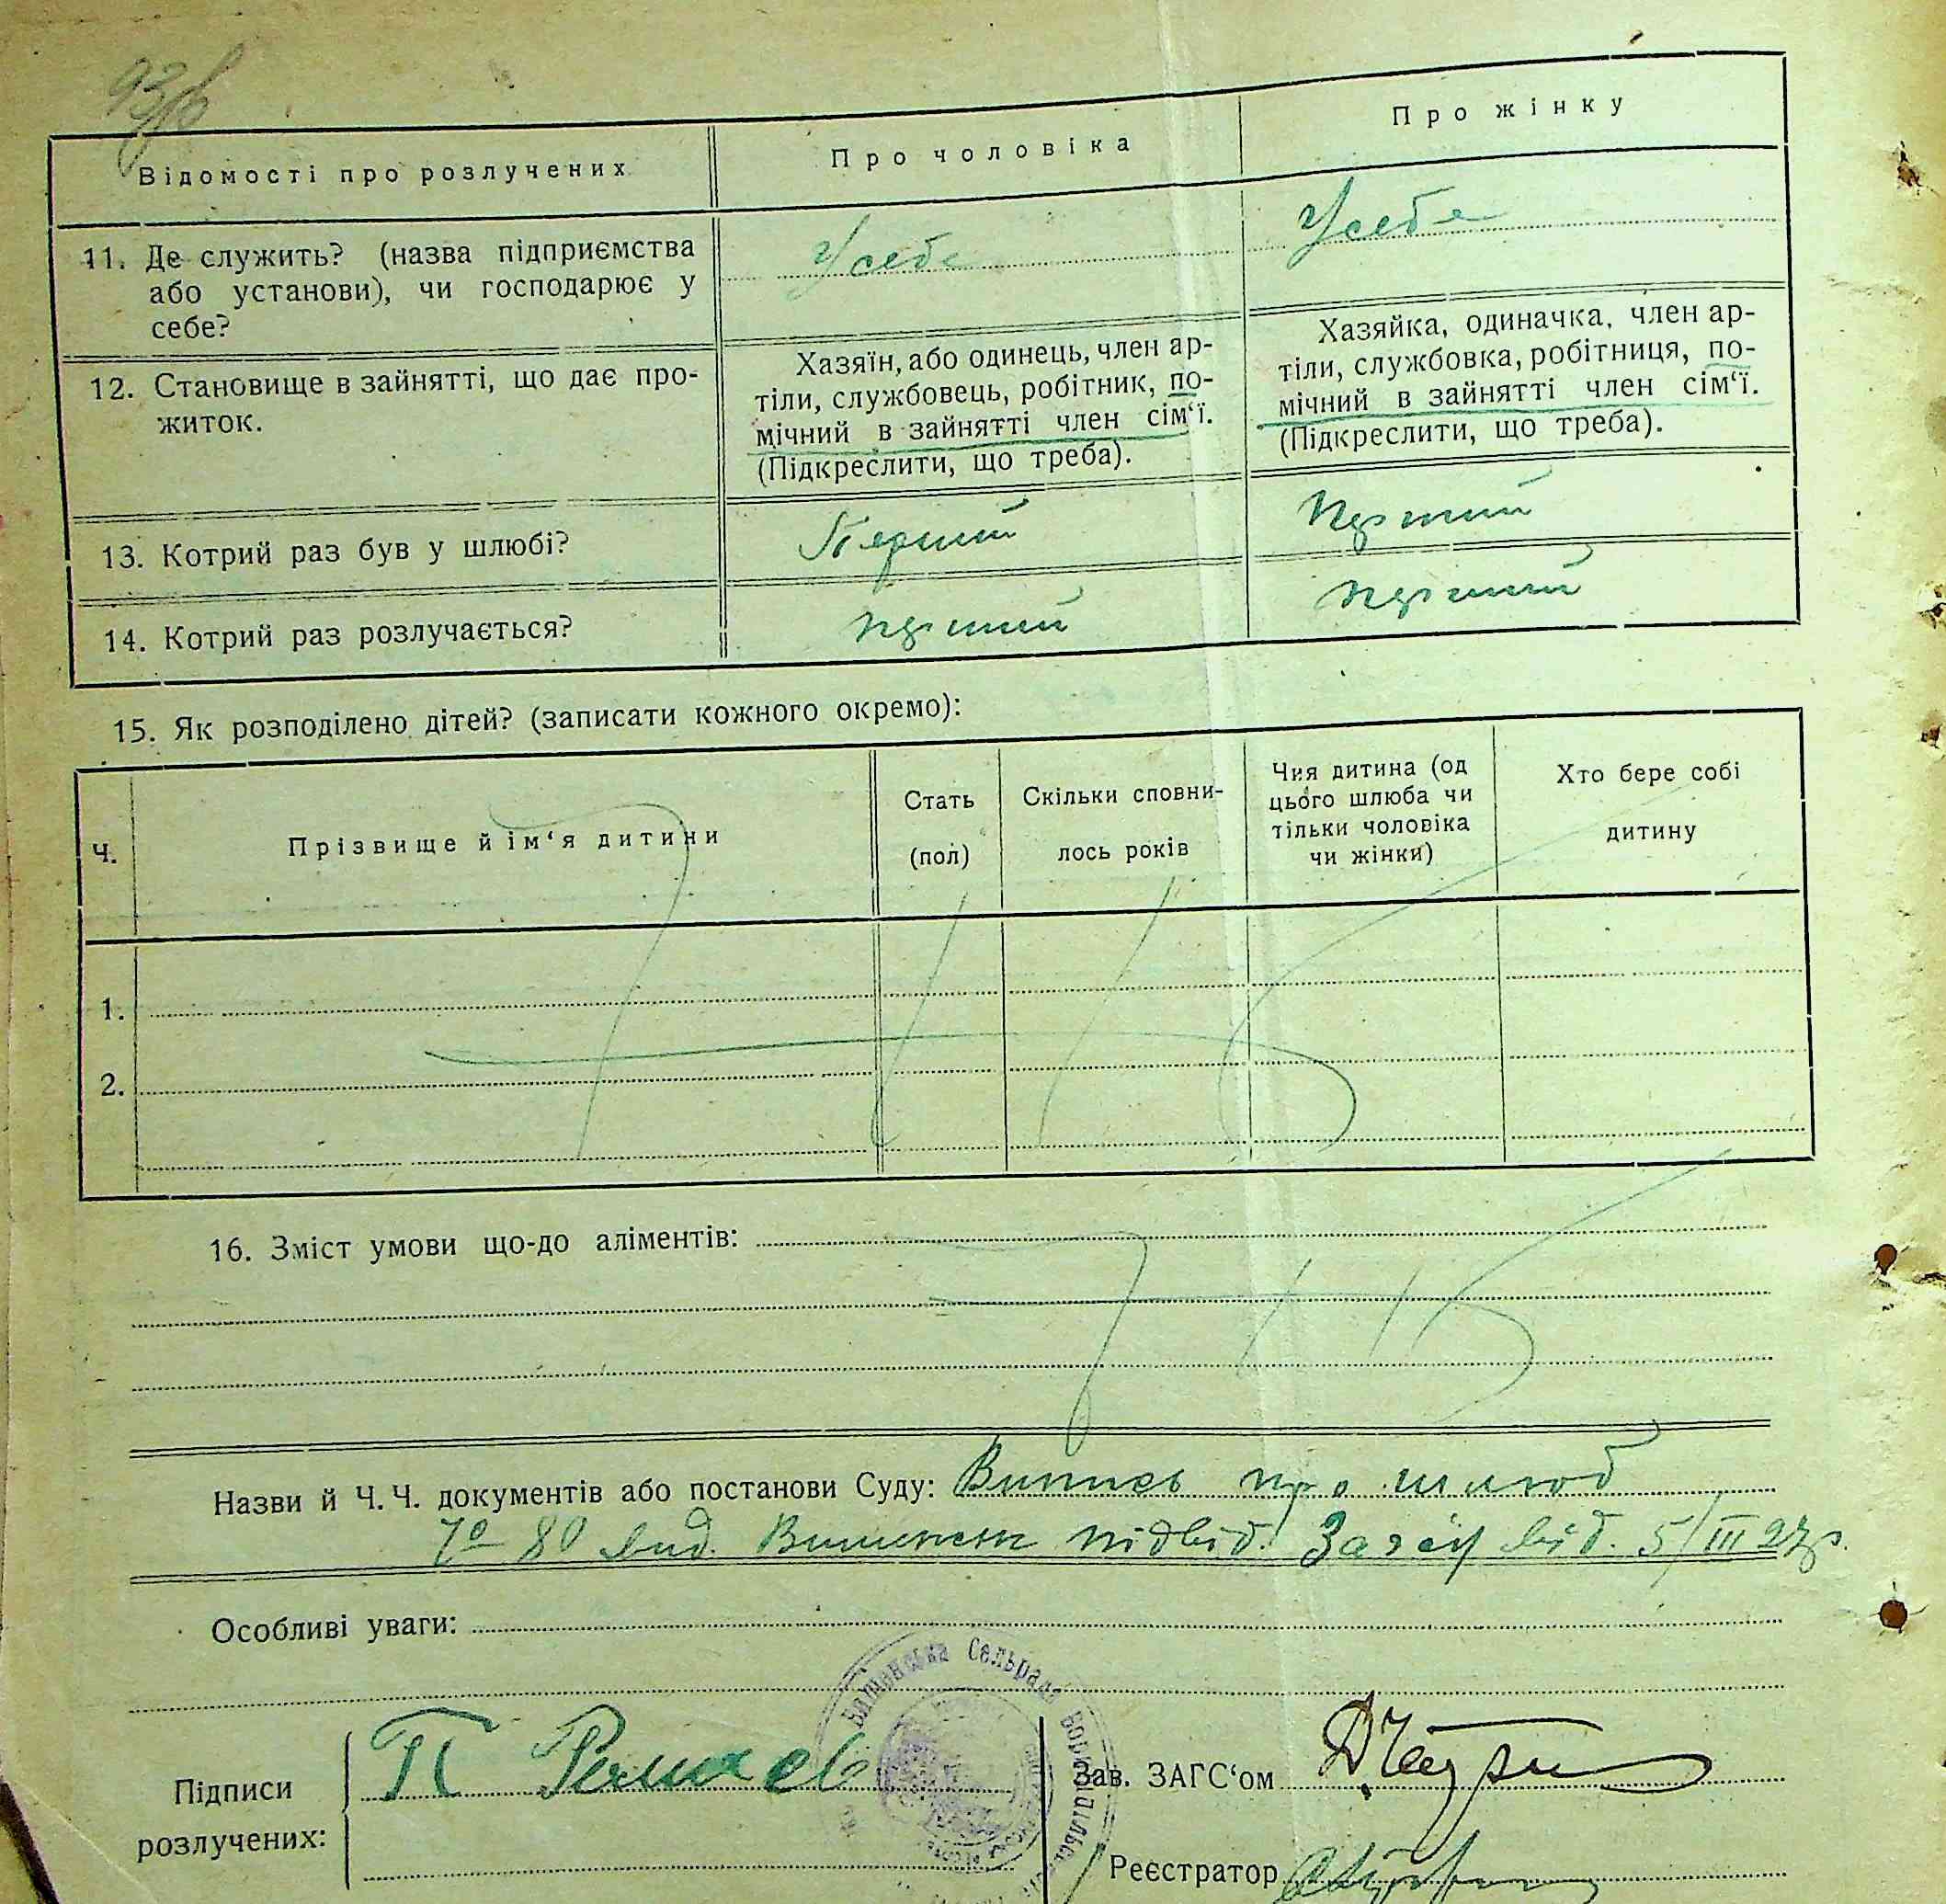 93
Відомості про розлучених
Про чоловіка
Про жінку
11. Де служить? (назва підприємства
або установи), чи господарює у
себе?
У себе
У себе
12. Становище в зайнятті, що дає про-
житок.
Хазяїн, або одинець, член ар-
тіли, службовець, робітник, по-
мічний в зайнятті член сім‘ї.
(Підкреслити, що треба).
Хазяйка, одиначка, член ар-
тіли, службовка, робітниця, по-
мічний в зайнятті член сім‘ї.
(Підкреслити, що треба).
13. Котрий раз був у шлюбі?
Перший
Перший
14. Котрий раз розлучається?
перший
перший
15. Як розподілено дітей? (записати кожного окремо):
Ч.
Прізвище й ім‘я дитини
Стать
(пол)
Скільки сповни-
лось років
Чия дитина (од
цього шлюба чи
тільки чоловіка
чи жінки)
Хто бере собі
дитину
1.
2.
16. Зміст умови що-до аліментів:
Назви й Ч. Ч. документів або постанови Суду: Випись про шлюб
80 вид. підвід. Загсу від. 5/III 27р.
Особливі уваги:
Сельрада
Підписи
розлучених:
П
Зав. ЗАГС‘ом
Реєстратор